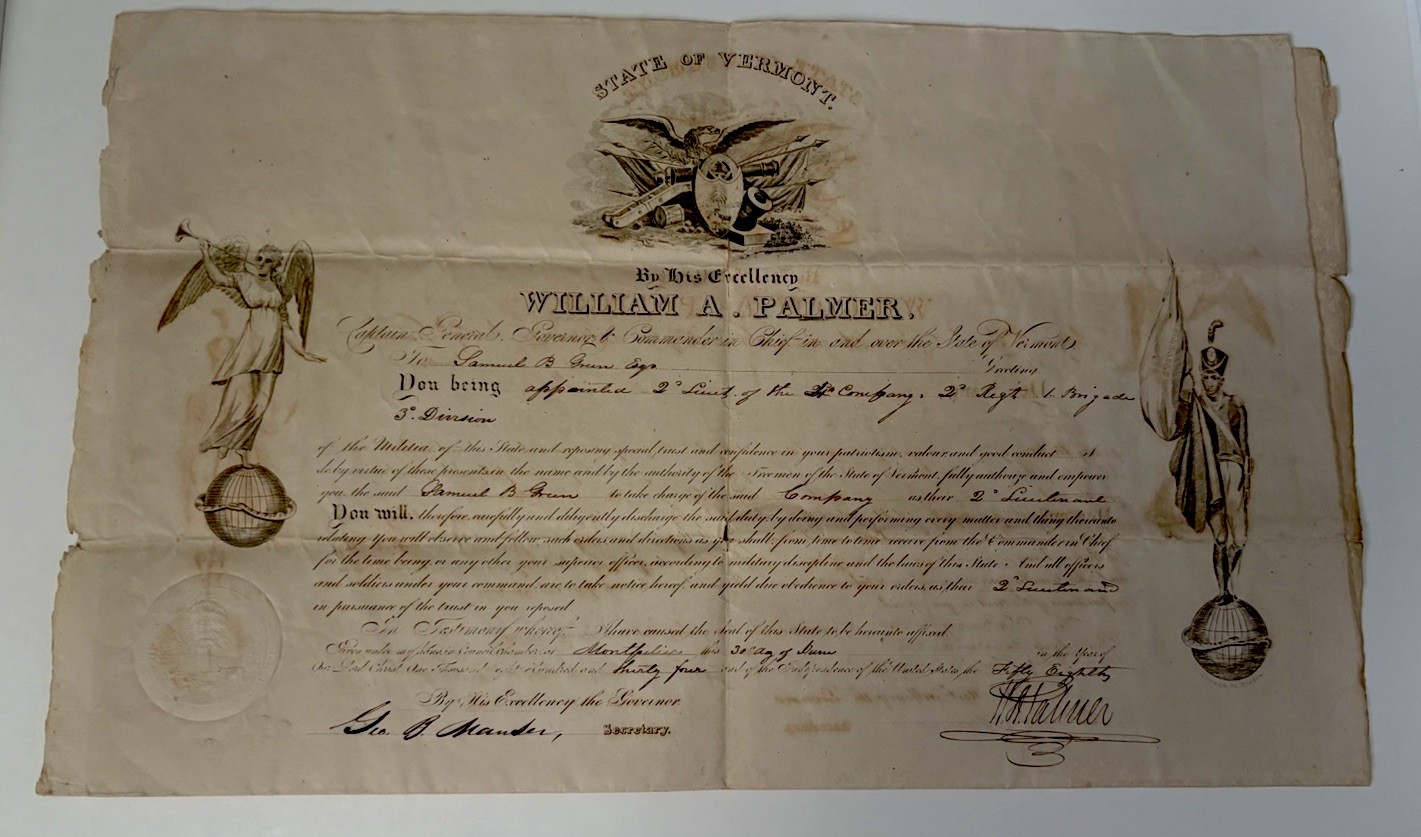 STATE OF VERMONT.
By His Excellency
WILLIAM A. PALMER.
Captain General, Governor & Commander in Chief in and over the State of Vermont
To Samuel B Green Esqr Greeting
You being appointed 2d Lieut. of the Company, 2d Regt 1. Brigade
3d. Division
of the Militia of this State and reposing special trust and confidence in your patriotism, valour and good conduct I
do by virtue of these presents in the name and by the authority of the Freemen of the State of Vermont fully authorize and empower
you the said Samuel B Green to take charge of the said Company as their 2d Lieutenant
You will, therefore, carefully and diligently discharge the said duty by doing and performing every matter and thing thereunto
relating You will observe and follow such orders and directions as you shall, from time to time receive from the Commander in Chief
for the time being, or any other your superior officer, according to military discipline and the laws of this State. And all officers
and soldiers under your command are to take notice hereof, and yield due obedience to your orders, as their 2d Lieutenant
in pursuance of the trust in you reposed.
In Testimony whereof, I have caused the Seal of this State to be hereunto affixed.
Given under my hand in Council Chamber, at Montpelier this 30 day of June in the Year of
Our Lord Christ One Thousand eight Hundred and thirty four and of the Independence of the United States, the Fifty Eighth
By His Excellency the Governor
W A Palmer
Geo. B. Manser, Secretary.